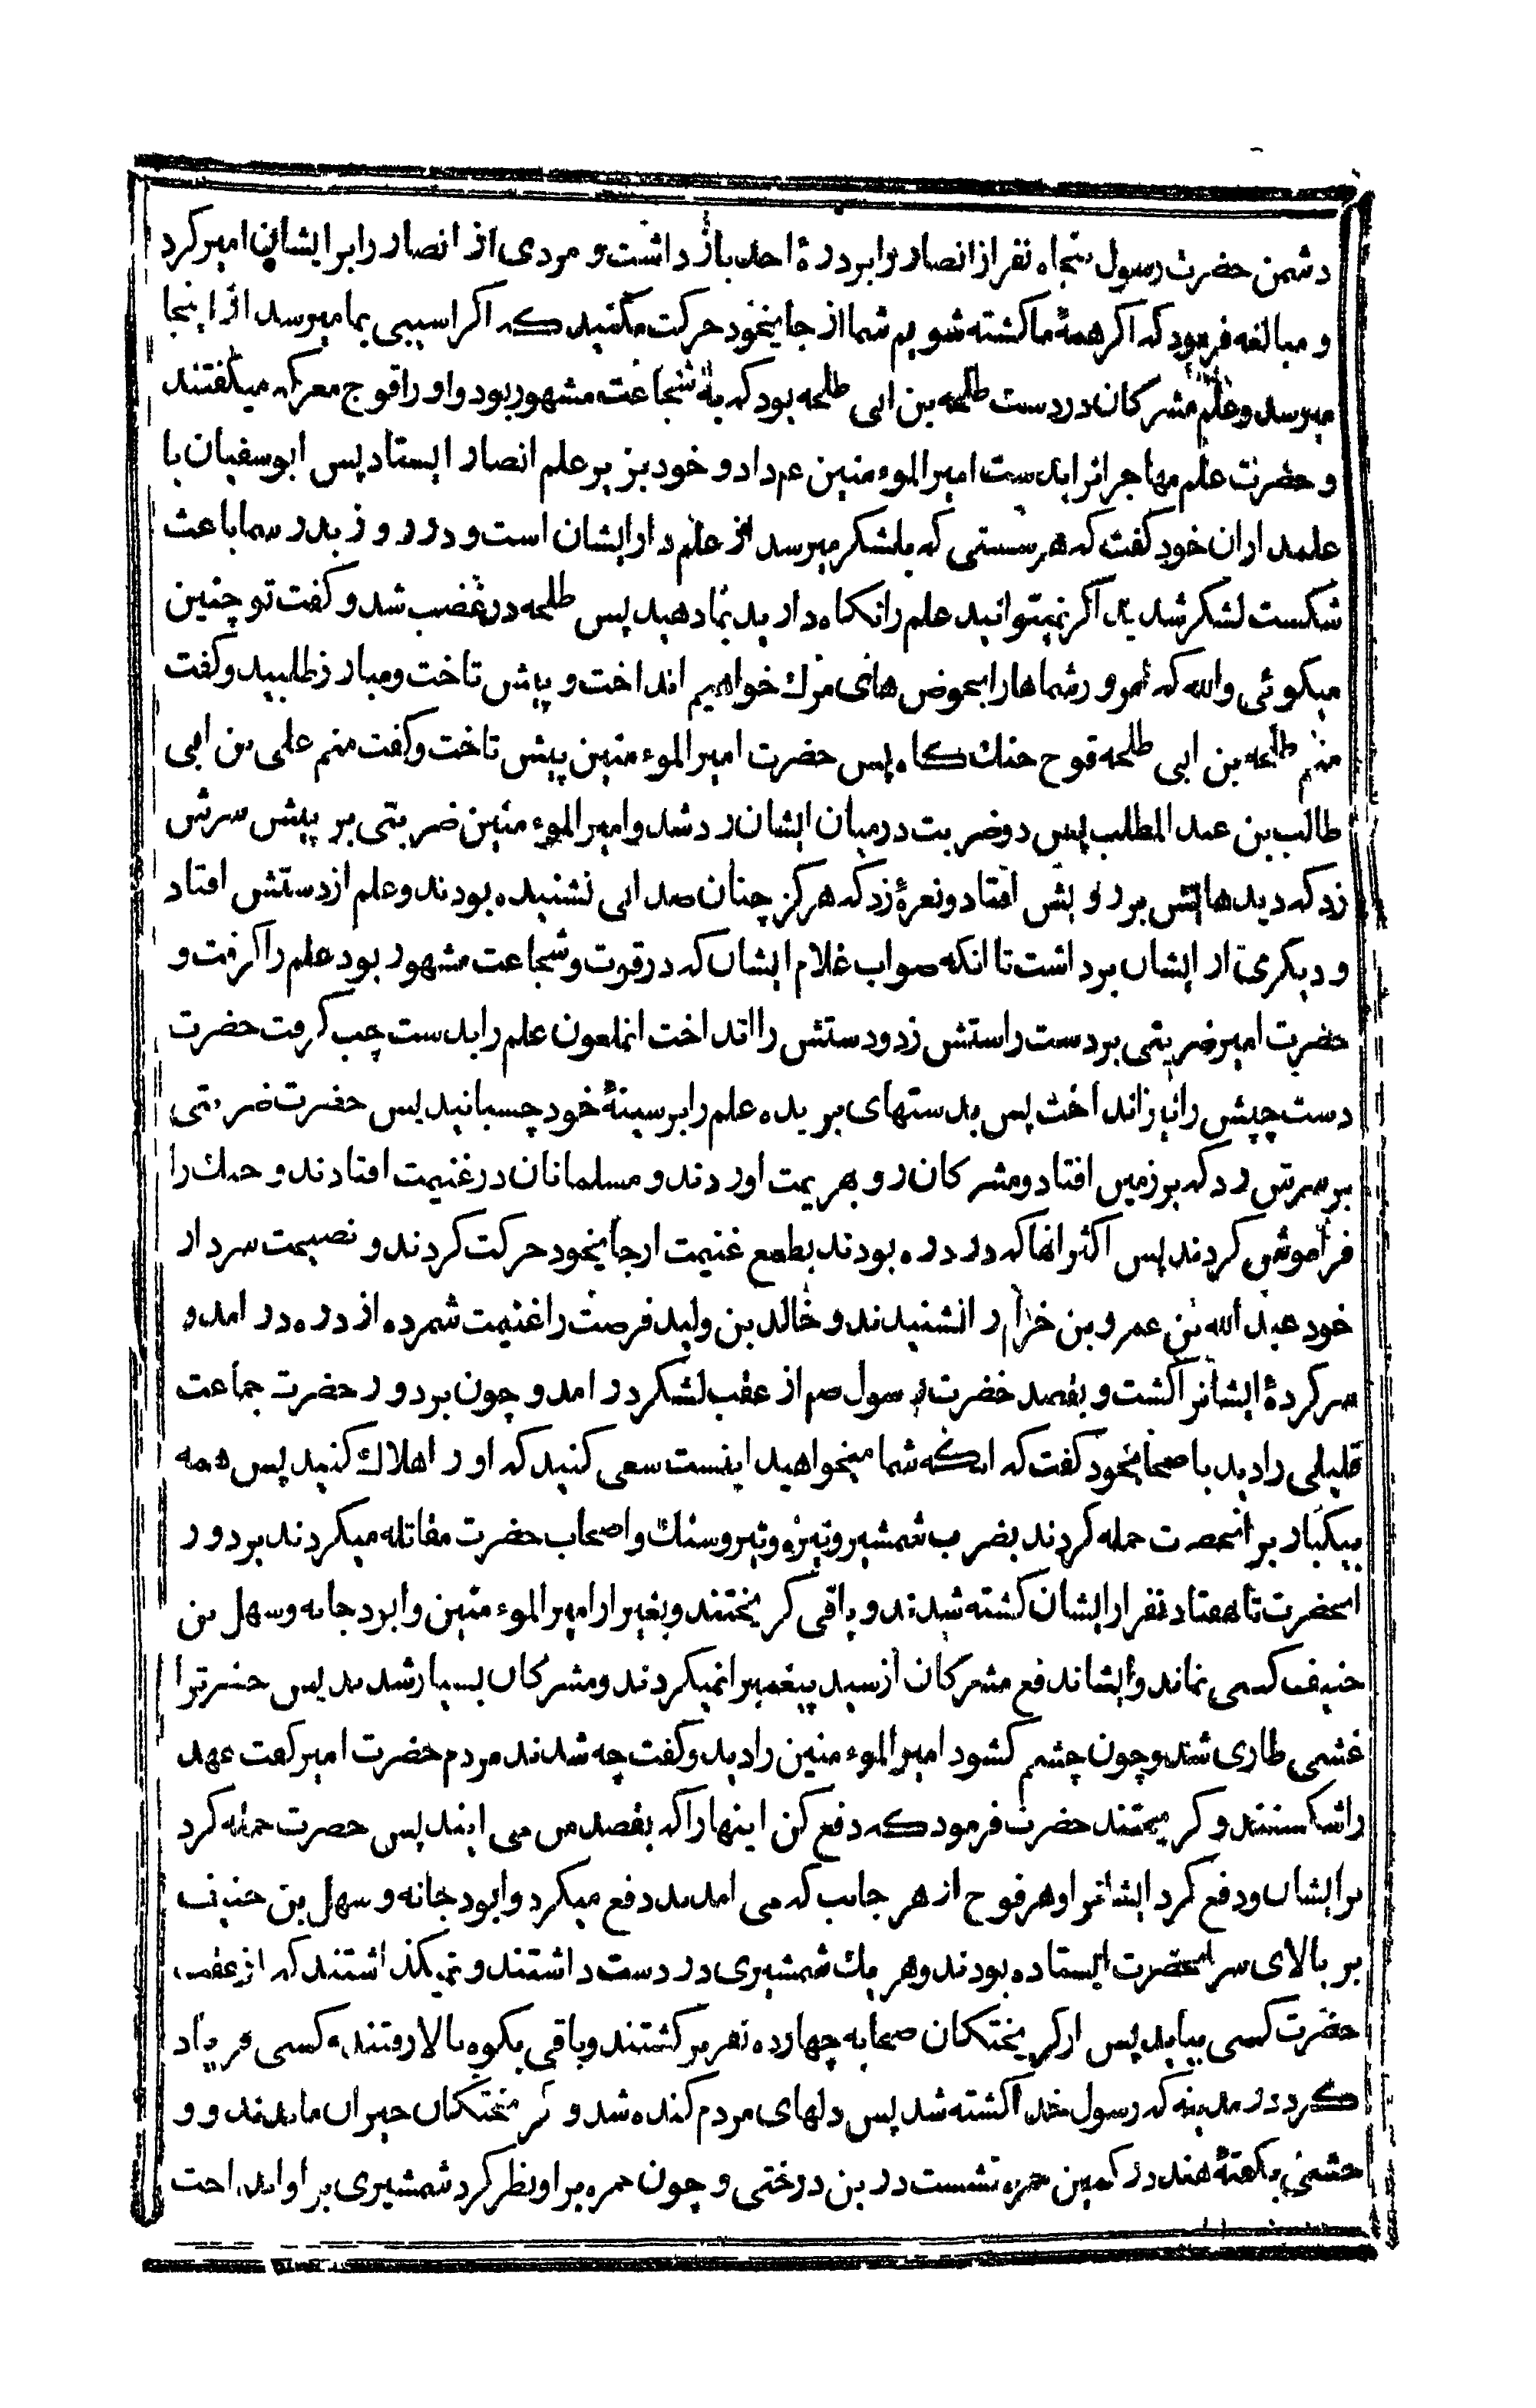 دشمن حضرت رسول پنجاه نفر از انصار را بر درهٔ احد باز داشت و مردی از انصار را بر ایشان امیر کرد
و مبالغه فرمود که اکر همهٔ ما کشته شویم شما از جایخود حرکت مکنید که اکر اسیبی بما میرسد از اینجا
میرسد و علم مشرکان در دست طلحه بن ابی طلحه بود که به شجاعت مشهور بود و او را قوج معرکه میکفتند
و حضرت علم مهاجرانرا بدست امیرالموءمنین عم داد و خود بزیر علم انصار ایستاد پس ابوسفیان با
علمداران خود کفت که هر سستی که بلشکر میرسد از علم دار ایشان است و در روز بدر سما باعث
شکست لشکر شدید اکر نمیتوانید علم را نکاه دارید بما دهید پس طلحه در غضب شد و کفت تو چنین
میکوئی والله که امروز شماها را بحوض های مرک خواهیم انداخت و پیش تاخت و مبارز طلبید و کفت
منم طلحه بن ابی طلحه قوج جنك کاه پس حضرت امیرالموءمنین پیش تاخت و کفت منم علی بن ابی
طالب بن عبد المطلب پس دو ضربت در میان ایشان رد شد و امیرالموءمنین ضربتی بر پیش سرش
زد که دیدهایش بر رویش افتاد و نعرهٔ زد که هرکز چنان صدایی نشنیده بودند و علم از دستش افتاد
و دیکری از ایشان برداشت تا انکه صواب غلام ایشان که در قوت و شجاعت مشهور بود علم را کرفت و
حضرت امیر ضربتی بر دست راستش زد و دستش را انداخت انملعون علم را بدست چپ کرفت حضرت
دست چپش را نیز انداخت پس بدستهای بریده علم را بر سینهٔ خود چسبانید پس حضرت ضربتی
بر سرش زد که بر زمین افتاد و مشرکان رو بهزیمت اوردند و مسلمانان در غنیمت افتادند و جنك را
فراموش کردند پس اکثر انها که در دره بودند بطمع غنیمت از جایخود حرکت کردند و نصیحت سردار
خود عبد الله بن عمرو بن خزام را نشنیدند و خالد بن ولید فرصت را غنیمت شمرده از دره در امد و
سرکردهٔ ایشانرا کشت و بقصد حضرت رسول صم از عقب لشکر در امد و چون بر دور حضرت جماعت
قلیلی را دید با صحابخود کفت که انکه شما میخواهید اینست سعی کنید که او را هلاك کنید پس همه
بیکبار بر انحضرت حمله کردند بضرب شمشیر و نیزه و تیر و سنك و اصحاب حضرت مقاتله میکردند بر دور
انحضرت تا هفتاد نفر از ایشان کشته شدند و باقی کریختند و بغیر از امیرالموءمنین و ابودجانه و سهل بن
حنیف کسی نماند و ایشاندفع مشرکان از سید پیغمبرا نمیکردند و مشرکان بسیار شدند پس حضرترا
غشمی طاری شد و چون چشم کشود امیرالموءمنین را دید و کفت چه شدند مردم حضرت امیر کفت عهد
را شکستند و کریختند حضرت فرمود که دفع کن اینها را که بقصد من می ایند پس حضرت حمله کرد
بر ایشان و دفع کرد ایشانرا و هر فوج از هر جانب که می امدند دفع میکرد و ابودجانه و سهل بن حنیف
بر بالای سر انحضرت ایستاده بودند و هر یك شمشیری در دست داشتند و نمیکذاشتند که از عقب
حضرت کسی بیاید پس از کریختکان صحابه چهارده نفر برکشتند و باقی بکوه بالا رفتند و کسی فریاد
کرد در مدینه که رسول خدا کشته شد پس دلهای مردم کنده شد و کریختکان حیران ماندند و و
حشی بکفتهٔ هند در کمین حمزه نشست در بن درختی و چون حمزه بر او نظر کرد شمشیری بر او انداخت